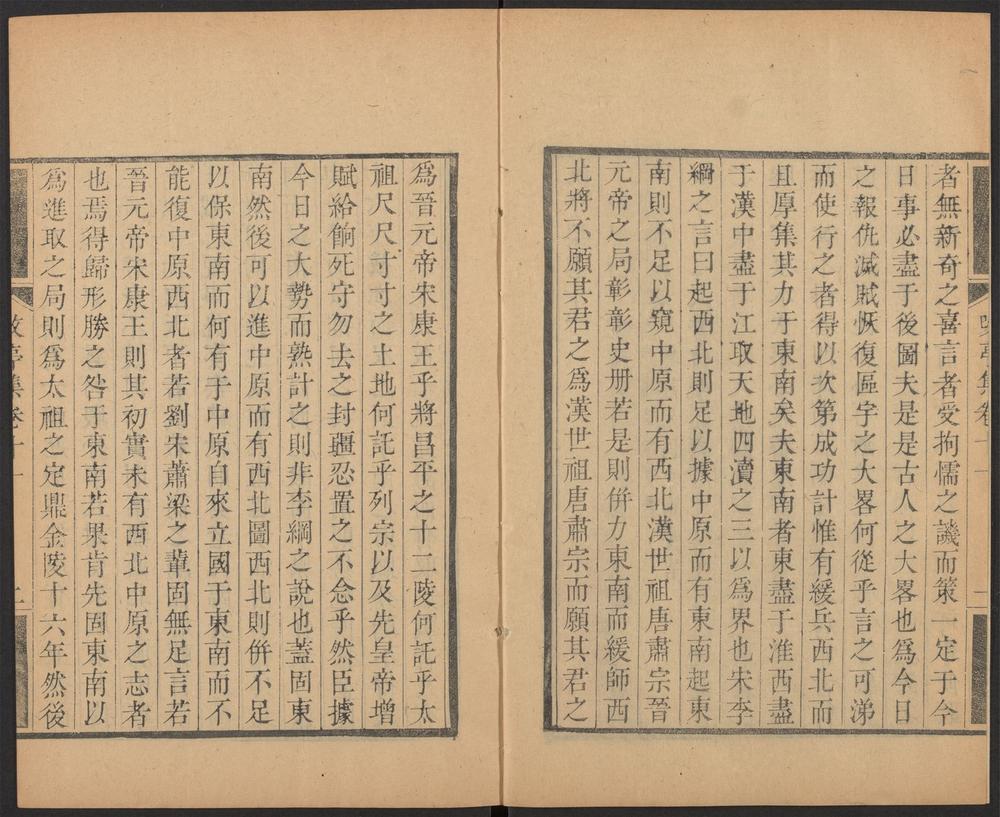 者無新奇之喜言者受拘懦之譏而策一定于今
日事必盡于後圖夫是是古人之大畧也為今日
之報仇滅賊恢復區字之大畧何從乎言之可涕
而使行之者得以次第成功計惟有緩兵西北而
且厚集其力于東南矣夫東南者東盡于淮西盡
于漢中盡于江取天地四瀆之三以為界也宋李
綱之言曰起西北則足以據中原而有東南起東
南則不足以窺中原而有西北漢世祖唐肅宗晉
元帝之局彰彰史册若是則併力東南而緩師西
北將不願其君之為漢世祖唐肅宗而願其君之
為晉元帝宋康王乎將昌平之十二陵何託乎太
祖尺尺寸寸之土地何託乎列宗以及先皇帝增
賦給餉死守勿去之封疆忍置之不念乎然臣據
今日之大勢而熟計之則非李綱之說也蓋固東
南然後可以進中原而有西北圖西北則併不足
以保東南而何有于中原自來立國于東南而不
能復中原西北者若劉宋蕭梁之輩固無足言若
晉元帝宋康王則其初實未有西北中原之志者
也焉得歸形勝之咎于東南若果肯先固東南以
為進取之局則為太祖之定鼎金陵十六年然後
亭集卷十一